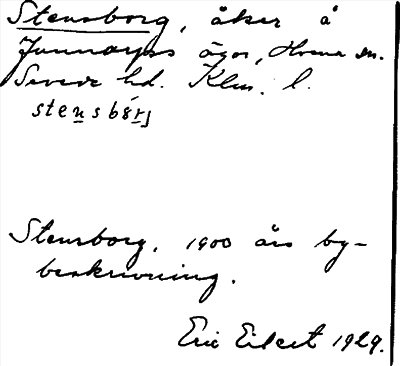 Stensborg, åker å
Junnaryds ägor, Hvena sn.
Sevede hd. Klm. l.
stensbórj
Stensborg, 1900 års by-
beskrivning.
Eric Eilert 1929.